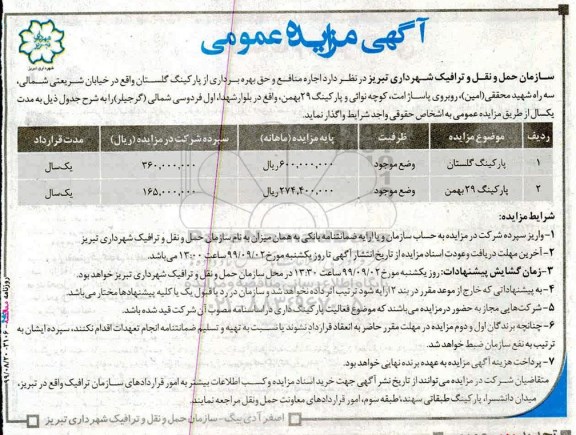 آگهی مزایده عمومی
شهرداری تبریز
سازمان حمل و نقل و ترافیک شهرداری تبریز در نظر دارد اجاره منافع و حق بهره برداری از پارکینگ گلستان واقع در خیابان شریعتی شمالی،
سه راه شهید محققی (امین)، روبروی پاساژ امت، کوچه نوائی و پارکینگ ۲۹ بهمن، واقع در بلوار شهدا، اول فردوسی شمالی (گرجیلر) را به شرح جدول ذیل به مدت
یکسال از طریق مزایده عمومی به اشخاص حقوقی واجد شرایط واگذار نماید.
ردیف موضوع مزایده ظرفیت پایه مزایده (ماهانه) سپرده شرکت در مزایده (ریال) مدت قرارداد
۱ پارکینگ گلستان وضع موجود ۶۰۰,۰۰۰,۰۰۰ ریال ۳۶۰,۰۰۰,۰۰۰ یک سال
۲ پارکینگ ۲۹ بهمن وضع موجود ۲۷۴,۴۰۰,۰۰۰ ریال ۱۶۵,۰۰۰,۰۰۰ یک سال
شرایط مزایده:
۱- واریز سپرده شرکت در مزایده به حساب سازمان و یا ارایه ضمانتنامه بانکی به همان میزان به نام سازمان حمل و نقل و ترافیک شهرداری تبریز
۲- آخرین مهلت دریافت و عودت اسناد مزایده از تاریخ انتشار آگهی تا روز یکشنبه مورخ ۹۹/۰۹/۰۲ ساعت ۱۲:۰۰ می باشد.
۳- زمان گشایش پیشنهادات: روز یکشنبه مورخ ۹۹/۰۹/۰۲ ساعت ۱۳:۳۰ در محل سازمان حمل و نقل و ترافیک شهرداری تبریز خواهد بود.
۴- به پیشنهاداتی که خارج از موعد مقرر در بند ۲ ارایه شود ترتیب اثر داده نخواهد شد. سازمان در رد یا قبول یک یا کلیه پیشنهادها مختار می باشد.
۵- شرکت هایی مجاز به حضور در مزایده می باشند که موضوع فعالیت پارکینگ داری در اساسنامه مصوب آن شرکت قید شده باشد.
۶- چنانچه برندگان اول و دوم مزایده در مهلت مقرر حاضر به انعقاد قرارداد نشوند یا نسبت به تهیه و تسلیم ضمانتنامه انجام تعهدات اقدام نکنند، سپرده ایشان به
ترتیب به نفع سازمان ضبط خواهد شد.
۷- پرداخت هزینه آگهی مزایده به عهده برنده نهایی خواهد بود.
متقاضیان شرکت در مزایده می توانند از تاریخ نشر آگهی جهت خرید اسناد مزایده و کسب اطلاعات بیشتر به امور قراردادهای سازمان ترافیک واقع در تبریز،
میدان دانشسرا، پارکینگ طبقاتی سهند، طبقه سوم، امور قراردادهای معاونت حمل ونقل مراجعه نمایند.
اصغر آدی بیگ - سازمان حمل و نقل و ترافیک شهرداری تبریز